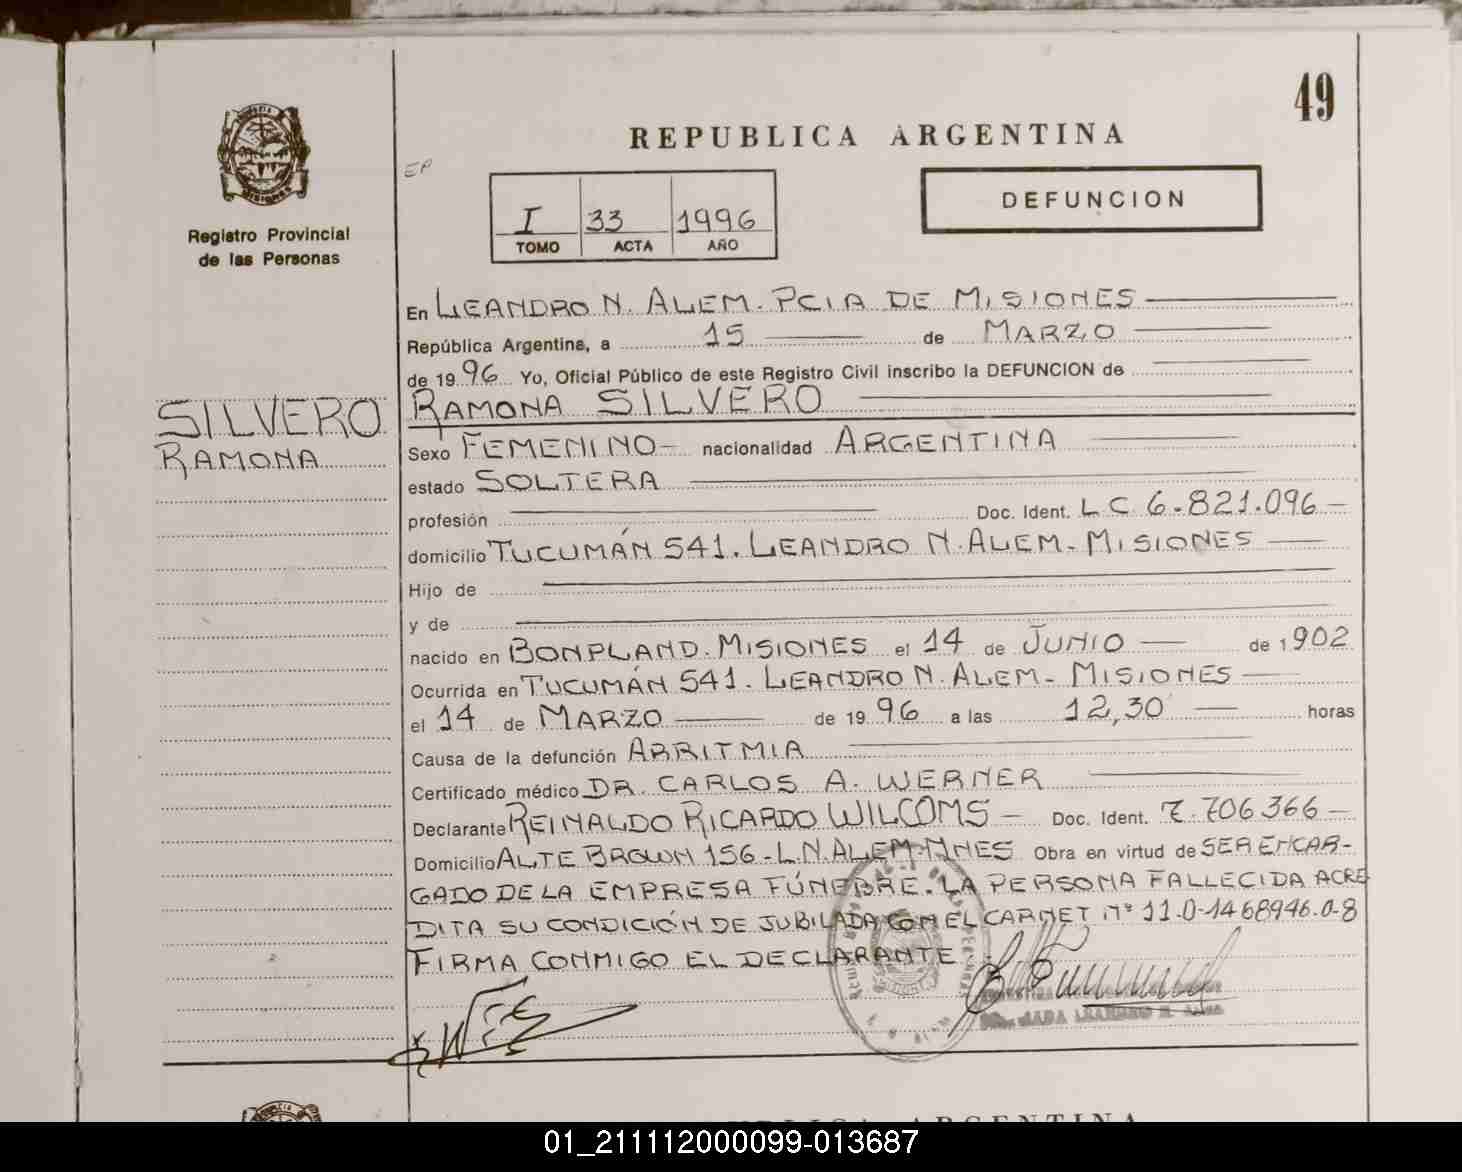 49
REPUBLICA ARGENTINA
EP
DEFUNCION
I 33 1996
TOMO ACTA AÑO
Registro Provincial
de las Personas
En LEANDRO N. ALEM. PCIA DE MISIONES
República Argentina, a 15 de MARZO
de 1996 Yo, Oficial Público de este Registro Civil inscribo la DEFUNCION de
SILVERO
RAMONA
RAMONA SILVERO
Sexo FEMENINO- nacionalidad ARGENTINA
estado SOLTERA
profesión Doc. Ident. LC 6.821.096-
domicilio TUCUMÁN 541. LEANDRO N. ALEM- MISIONES
Hijo de
y de
nacido en BONPLAND. MISIONES el 14 de JUNIO de 1902
Ocurrida en TUCUMÁN 541. LEANDRO N. ALEM- MISIONES
el 14 de MARZO de 1996 a las 12,30 horas
Causa de la defunción ARRITMIA
Certificado médico DR. CARLOS A. WERNER
Declarante REINALDO RICARDO WILCOMS - Doc. Ident. 7.706.366-
Domicilio ALTE BROWN 156-L.N.ALEM-MNES Obra en virtud de SER ENCAR-
GADO DE LA EMPRESA FÚNEBRE. LA PERSONA FALLECIDA ACRE
DITA SU CONDICIÓN DE JUBILADA CON EL CARNET Nº 11.0-1468946.0-8
FIRMA CONMIGO EL DECLARANTE
REPUBLICA ARGENTINA
01_211112000099-013687